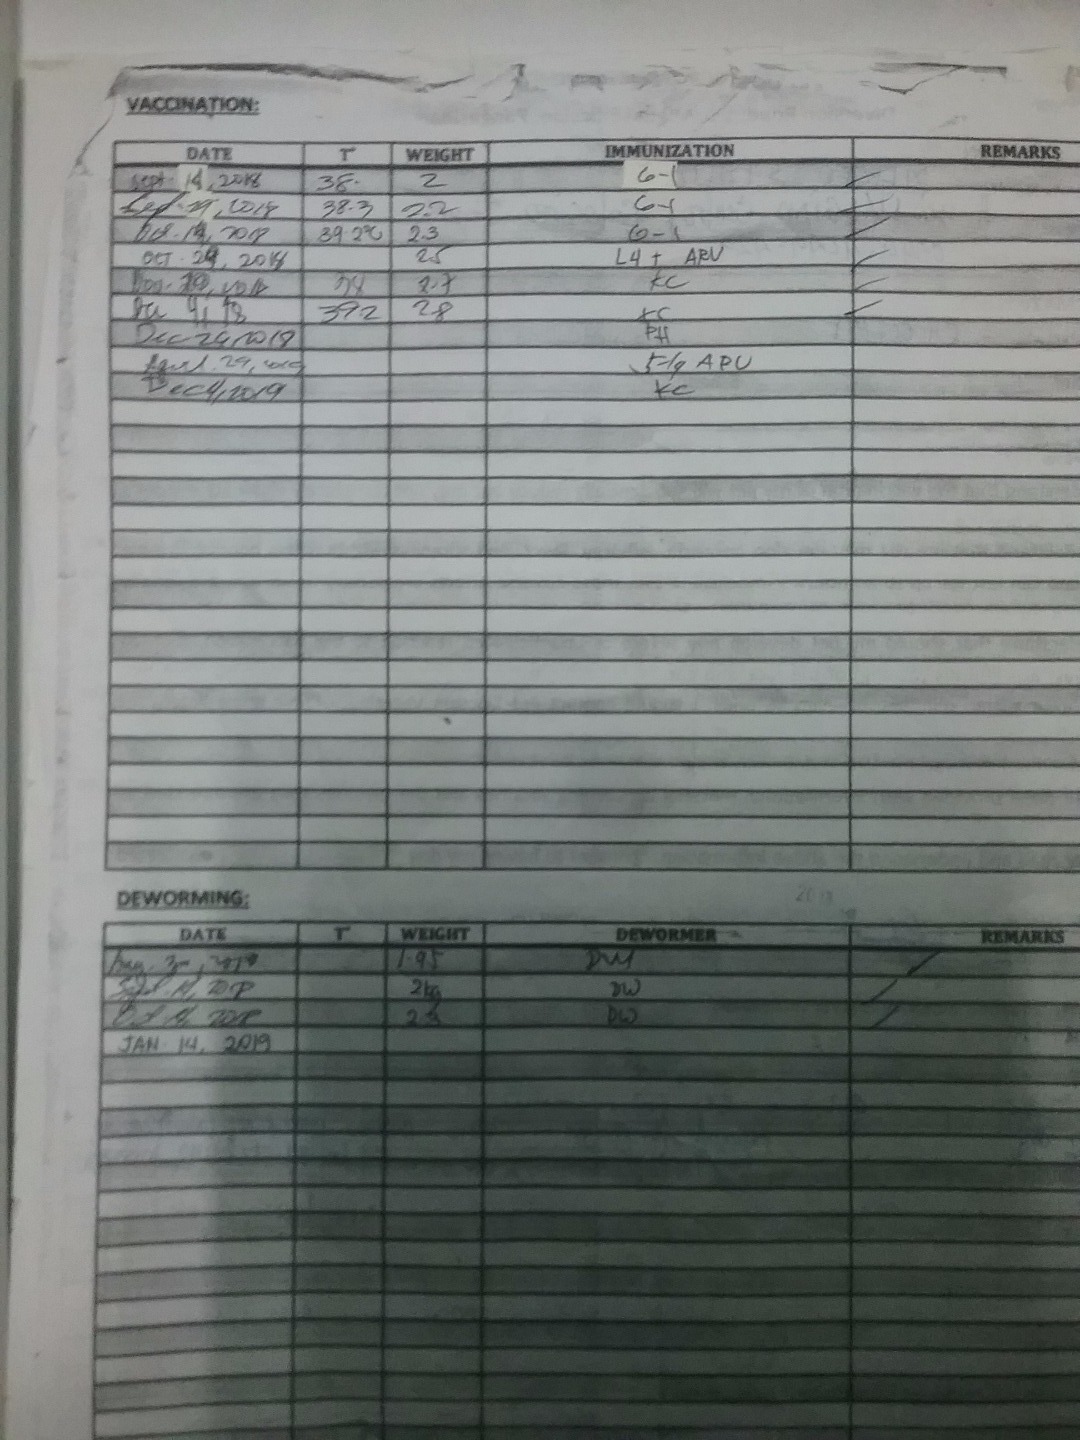 VACCINATION:
DATE T WEIGHT IMMUNIZATION REMARKS
Sept 14, 2018 38. 2 6-1
2018 38.3 2.2 6-1
Oct. 14, 2018 39.2°C 2.3 6-1
OCT. 29, 2018 25 L4 + ARV
2018 2.7 KC
4, 18 39.2 28 KC
Dec 26, 2018 PH
April 29, 2019 ARV
Dec 4, 2019 KC
DEWORMING:
DATE T WEIGHT DEWORMER REMARKS
Aug. 30, 2018 1.95 DW
Sept. 14, 2018 2kg DW
Oct 14, 2018 2.3 DW
JAN. 14, 2019